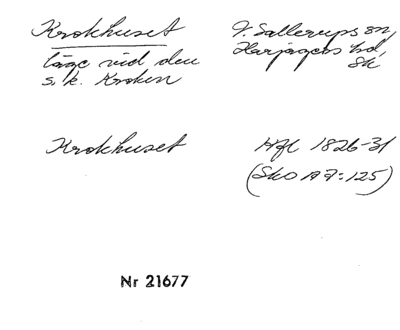 Krokhuset V. Sallerups sn,
läge vid den Harjagers hd,
s.k. Kroken Sk
Krokhuset Hfl 1826-31
(Sko A I:125)
Nr 21677